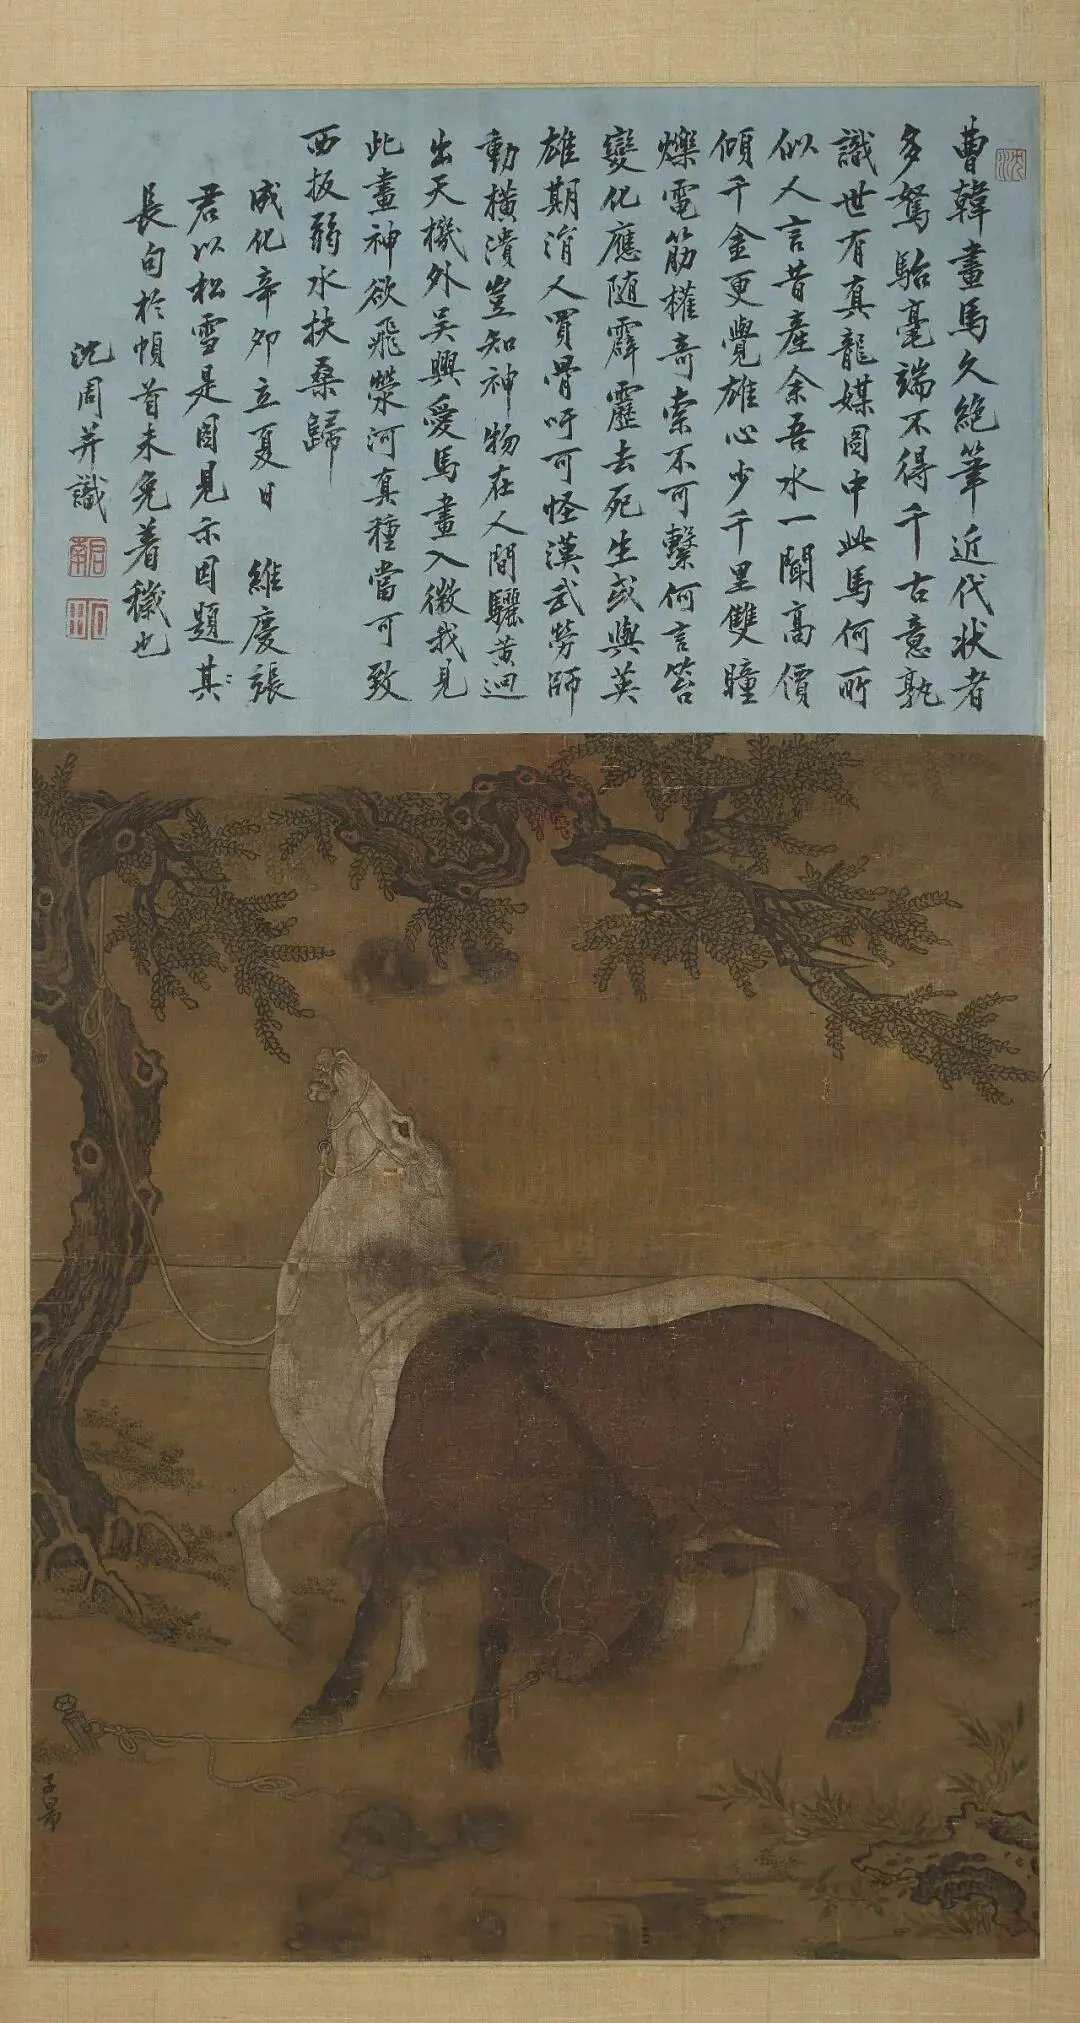 曹韓畫馬久絕筆近代狀者
多駑駘毫端不得千古意孰
識世有真龍媒圖中此馬何所
似人言昔產余吾水一聞高價
傾千金更覺雄心少千里雙瞳
爍電筋權奇索不可繫何言笞
變化應隨霹靂去死生或與英
雄期涓人買骨吁可怪漢武勞師
動橫潰豈知神物在人間驪黃迥
出天機外吳興愛馬畫入微我見
此畫神欲飛滎河真種當可致
西扳弱水扶桑歸
成化辛卯立夏日 維慶張
君以松雪是圖見示因題其
長句於幀首未免着穢也
沈周并識
啟南
子昂